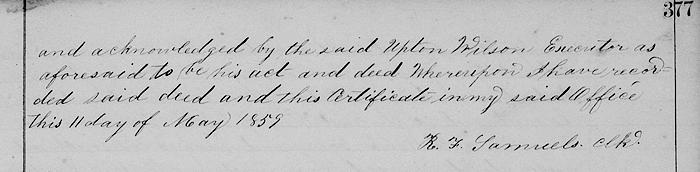 377
and acknowledged by the said Upton Wilson Executor as
aforesaid to be his act and deed Whereupon I have recor-
ded said deed and this Certificate in my said Office
this 11 day of May 1859
R. F. Samuels. clk.